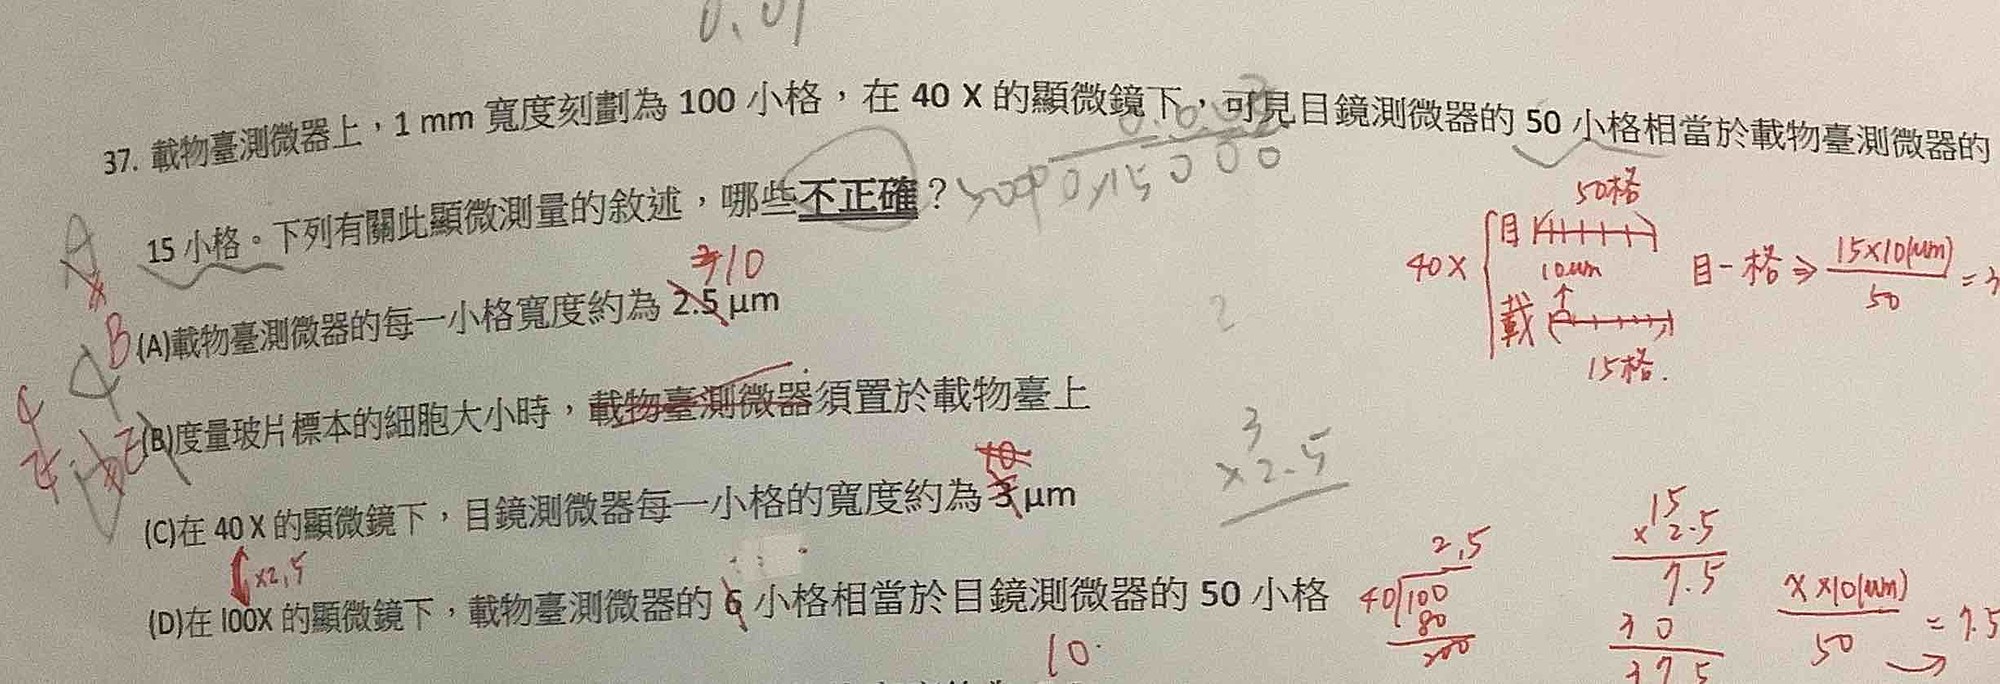 0.01
37. 載物臺測微器上，1 mm 寬度刻劃為 100 小格，在 40 X 的顯微鏡下，可見目鏡測微器的 50 小格相當於載物臺測微器的
15 小格。下列有關此顯微測量的敘述，哪些不正確？
50格
40X
目
10um
載
15格.
目一格⇒ 15×10(um) / 50 = 3
10
(A)載物臺測微器的每一小格寬度約為 2.5 μm
B
(B)度量玻片標本的細胞大小時，載物臺測微器須置於載物臺上
3
×2.5
10
(C)在 40 X 的顯微鏡下，目鏡測微器每一小格的寬度約為 3 μm
×2.5
(D)在 100X 的顯微鏡下，載物臺測微器的 6 小格相當於目鏡測微器的 50 小格
10
2.5
40 100
80
200
15
×2.5
7.5
30
37.5
X×10(um) / 50 = 7.5